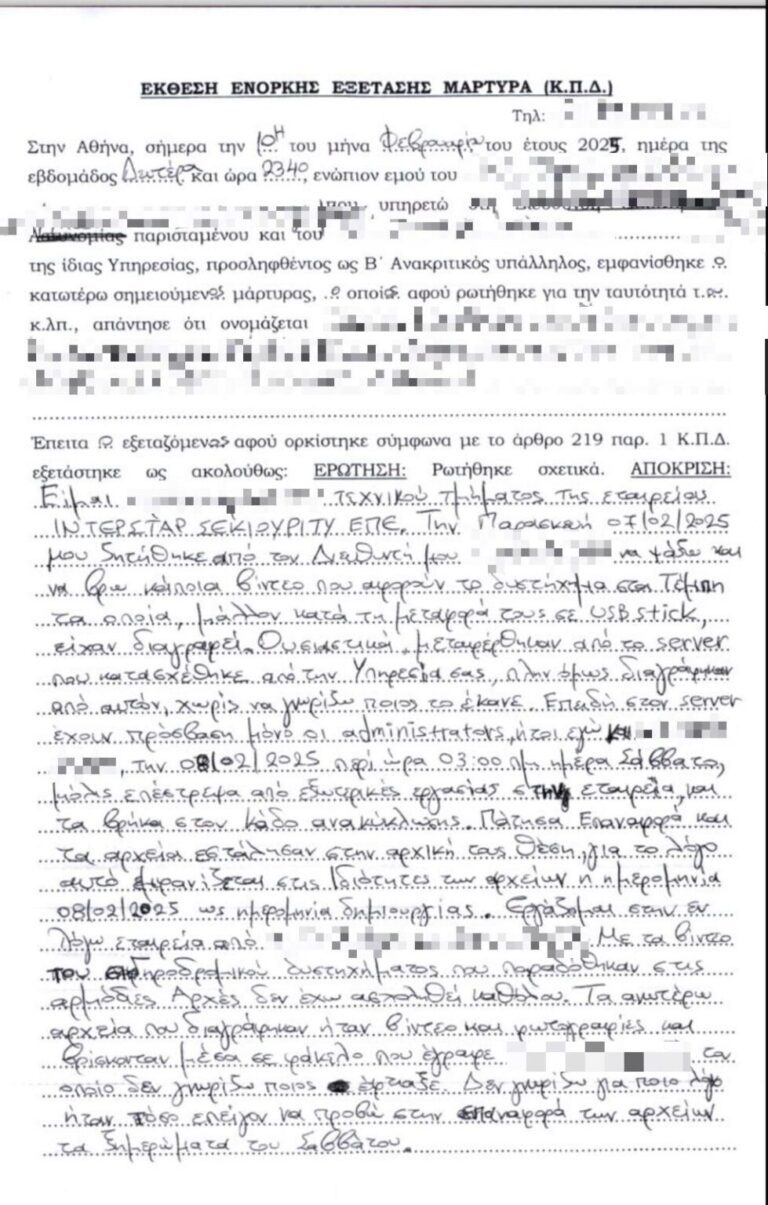 ΕΚΘΕΣΗ ΕΝΟΡΚΗΣ ΕΞΕΤΑΣΗΣ ΜΑΡΤΥΡΑ (Κ.Π.Δ.)
Τηλ:
Στην Αθήνα, σήμερα την 10η του μήνα Φεβρουαρίου του έτους 2025, ημέρα της
εβδομάδος Δευτέρα και ώρα 23.40, ενώπιον εμού του
υπηρετώ
παρισταμένου και του
της ίδιας Υπηρεσίας, προσληφθέντος ως Β΄ Ανακριτικός υπάλληλος, εμφανίσθηκε ο
κατωτέρω σημειούμενος μάρτυρας, ο οποίος αφού ρωτήθηκε για την ταυτότητά του
κ.λπ., απάντησε ότι ονομάζεται
Έπειτα ο εξεταζόμενος αφού ορκίστηκε σύμφωνα με το άρθρο 219 παρ. 1 Κ.Π.Δ.
εξετάστηκε ως ακολούθως: ΕΡΩΤΗΣΗ: Ρωτήθηκε σχετικά. ΑΠΟΚΡΙΣΗ:
Είμαι τεχνικού τμήματος της εταιρείας
ΙΝΤΕΡΣΤΑΡ ΣΕΚΙΟΥΡΙΤΥ ΕΠΕ. Την Παρασκευή 07/02/2025
μου ζητήθηκε από τον Διευθυντή μου να ψάξω και
να βρω κάποια βίντεο που αφορούν το δυστύχημα στα Τέμπη
τα οποία, μάλλον κατά τη μεταφορά τους σε USB stick,
είχαν διαγραφεί. Ουσιαστικά, μεταφέρθηκαν από το server
που κατασχέθηκε από την Υπηρεσία σας, πλην όμως διαγράφηκαν
από αυτόν, χωρίς να γνωρίζω ποιος το έκανε. Επειδή στον server
έχουν πρόσβαση μόνο οι administrators, ήτοι εγώ και
, την 08/02/2025 περί ώρα 03:00 πμ ημέρα Σάββατο,
μόλις επέστρεψα από εξωτερικές εργασίες στην εταιρεία, και
τα βρήκα στον κάδο ανακύκλωσης. Πάτησα Επαναφορά και
τα αρχεία εστάλησαν στην αρχική τους θέση, για το λόγο
αυτό εμφανίζεται στις Ιδιότητες των αρχείων η ημερομηνία
08/02/2025 ως ημερομηνία δημιουργίας. Εργάζομαι στην εν
λόγω εταιρεία από . Με τα βίντεο
του σιδηροδρομικού δυστυχήματος που παραδόθηκαν στις
αρμόδιες Αρχές δεν έχω ασχοληθεί καθόλου. Τα ανωτέρω
αρχεία που διαγράφηκαν ήταν βίντεο και φωτογραφίες και
βρίσκονταν μέσα σε φάκελο που έγραφε τον
οποίο δεν γνωρίζω ποιος έφτιαξε. Δεν γνωρίζω για ποιο λόγο
ήταν τόσο επείγον να προβώ στην επαναφορά των αρχείων
τα ξημερώματα του Σαββάτου.